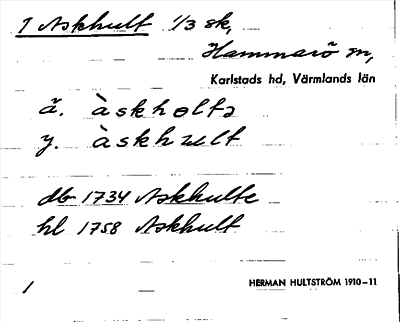 1 Askhult 1/3 sk,
Hammarö sn,
Karlstads hd, Värmlands län
ä. àskhɵltə
y. àskhult
db 1734 Askhulte
hl 1758 Askhult
1 HERMAN HULTSTRÖM 1910–11